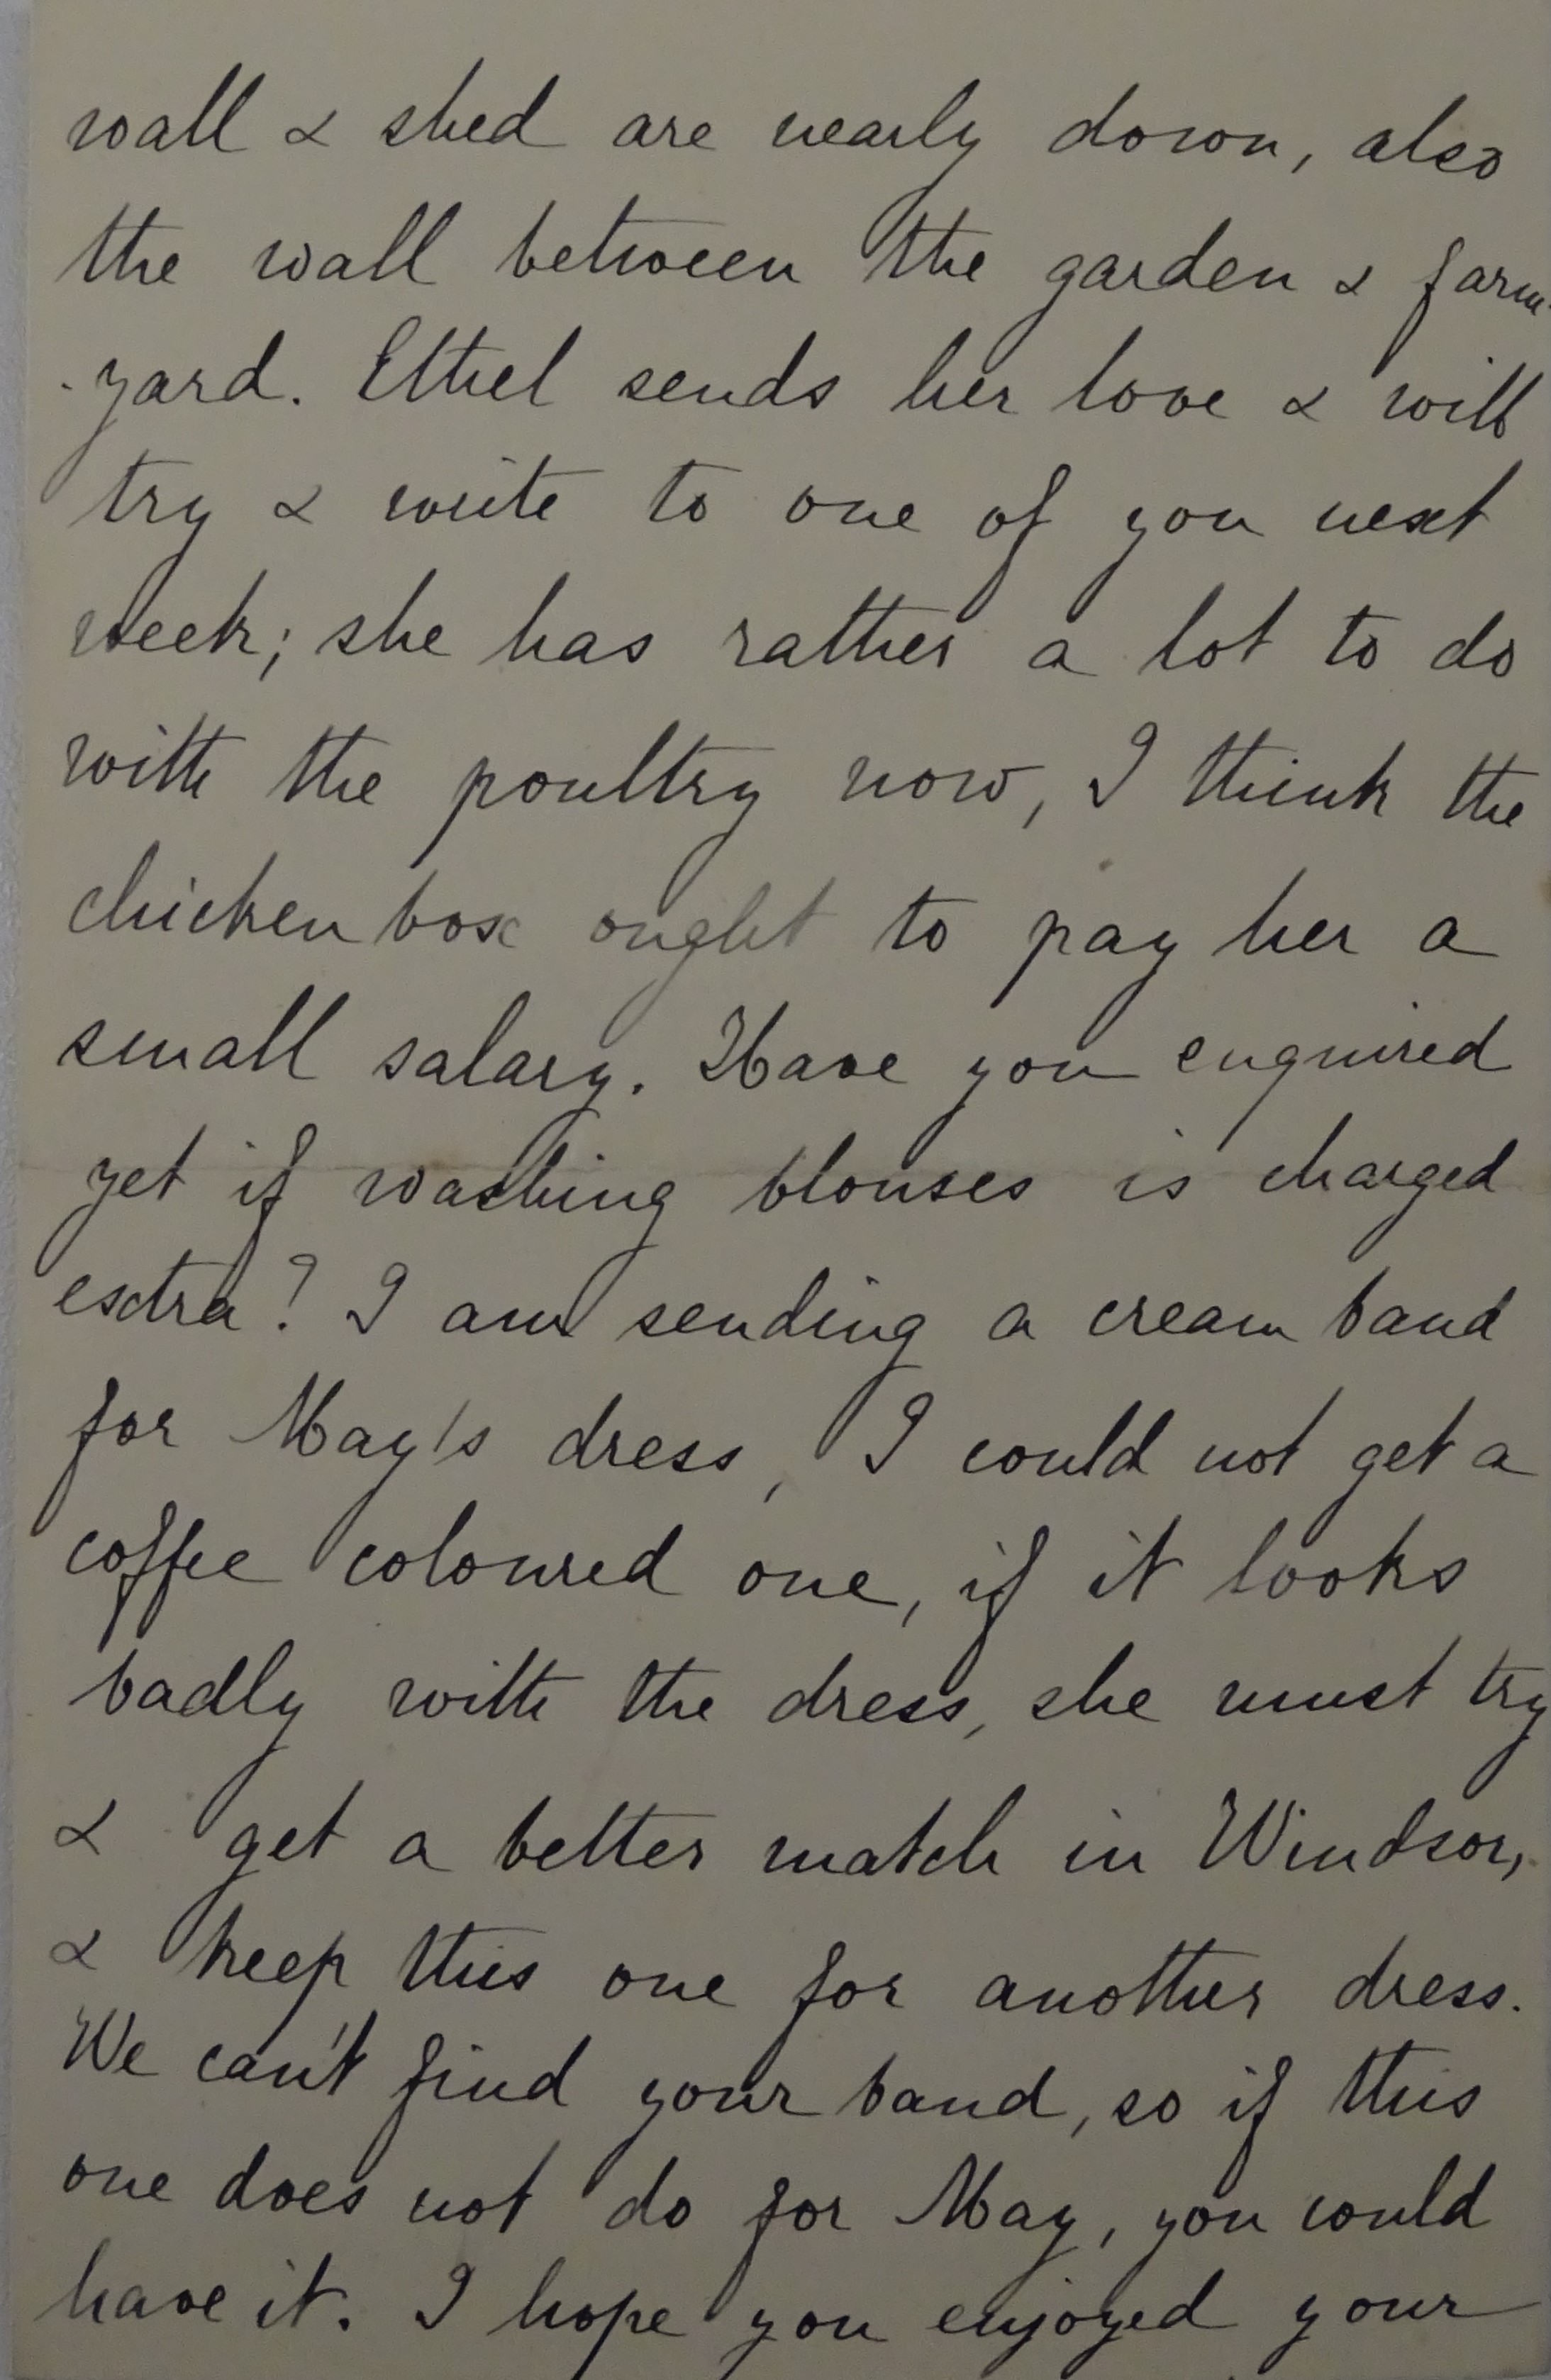 wall & shed are nearly down, also
the wall between the garden & farm-
-yard. Ethel sends her love & will
try & write to one of you next
week; she has rather a lot to do
with the poultry now, I think the
chicken box ought to pay her a
small salary. Have you enquired
yet if washing blouses is charged
extra? I am sending a cream band
for May's dress, I could not get a
coffee coloured one, if it looks
badly with the dress, she must try
& get a better match in Windsor,
& keep this one for another dress.
We can't find your band, so if this
one does not do for May, you could
have it. I hope you enjoyed your